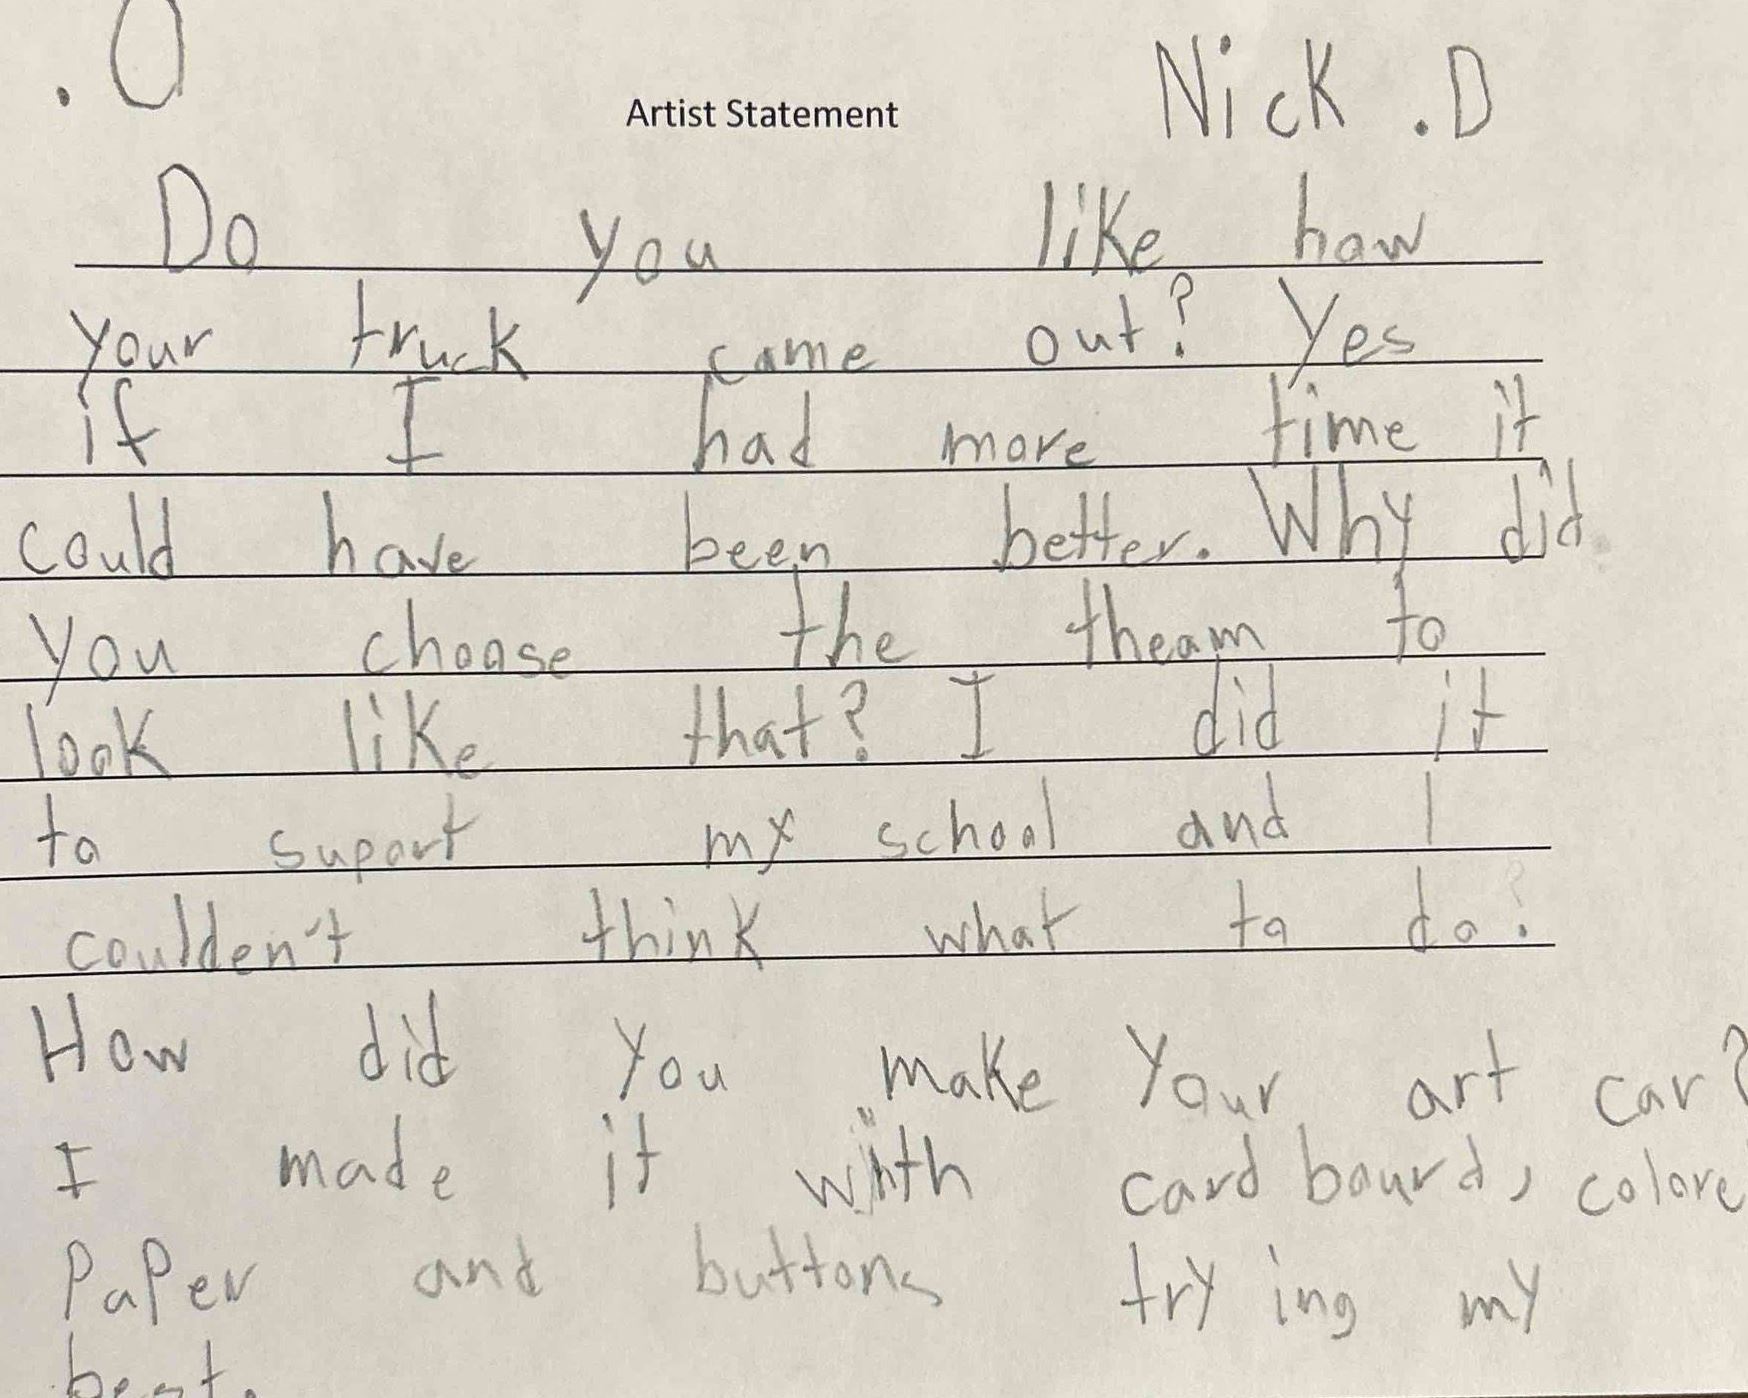 .O
Nick .D
Artist Statement
Do you like how
your truck came out? Yes
if I had more time it
could have been better. Why did
you choose the theam to
look like that? I did it
to suport my school and I
coulden't think what to do?
How did you make your art car?
I made it with card bourd, colore
Paper and buttons try ing my
best.